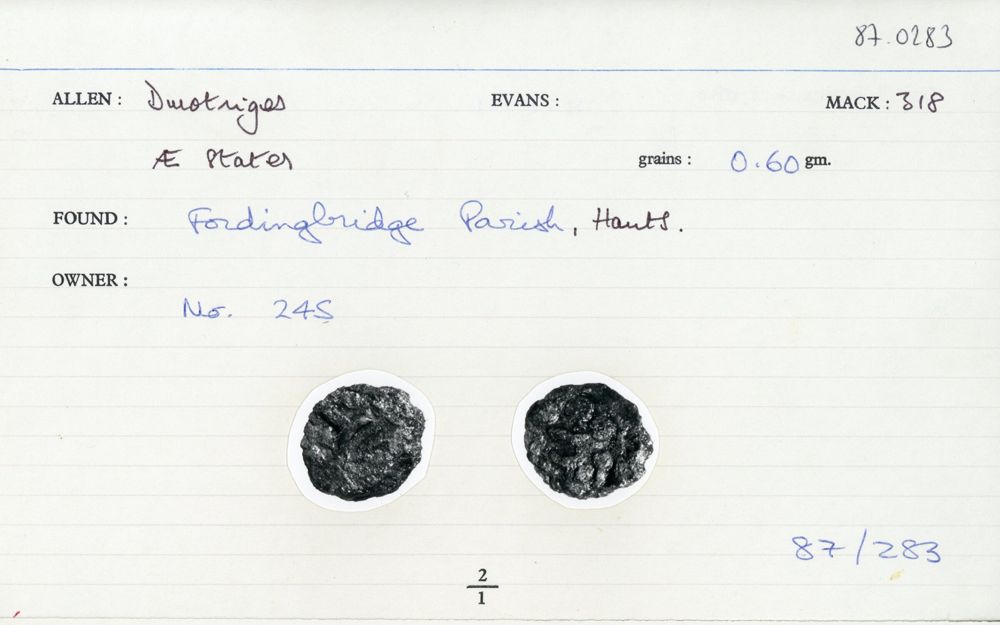 87.0283
ALLEN : Durotriges EVANS : MACK : 318
Æ Stater grains : 0.60 gm.
FOUND : Fordingbridge Parish, Hants.
OWNER :
No. 245
87/283
2
1